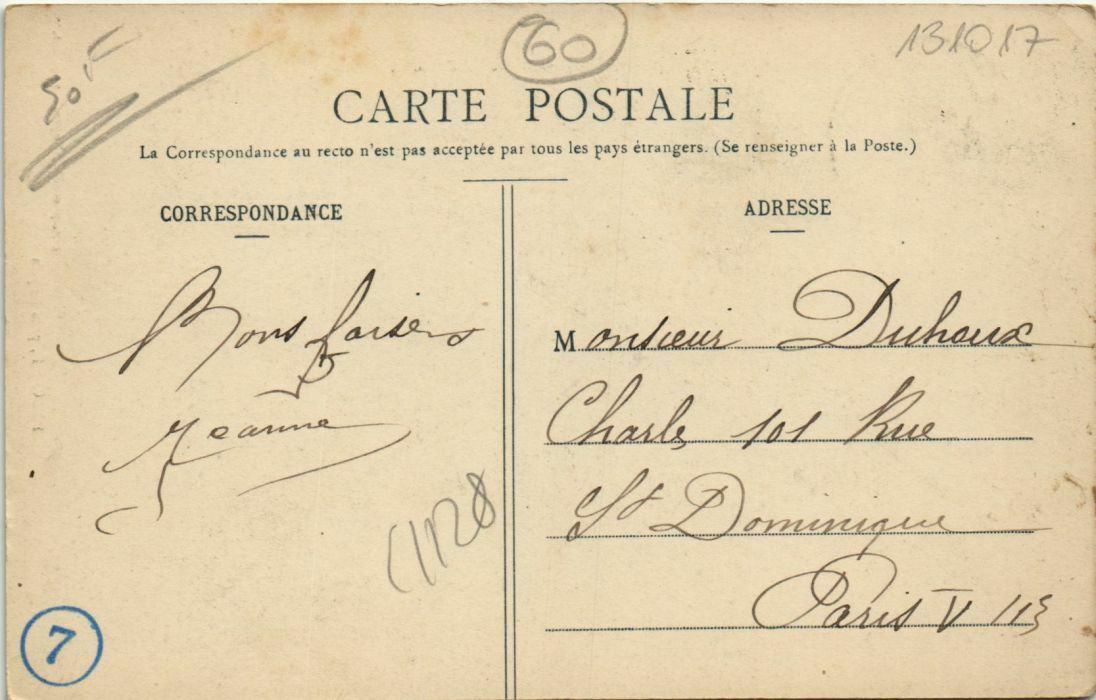 50 F
60
131017
CARTE POSTALE
La Correspondance au recto n'est pas acceptée par tous les pays étrangers. (Se renseigner à la Poste.)
CORRESPONDANCE
Bons baisers
Jeanne
C1128
7
ADRESSE
Monsieur Duhoux
Charles 101 Rue
St Dominique
Paris V